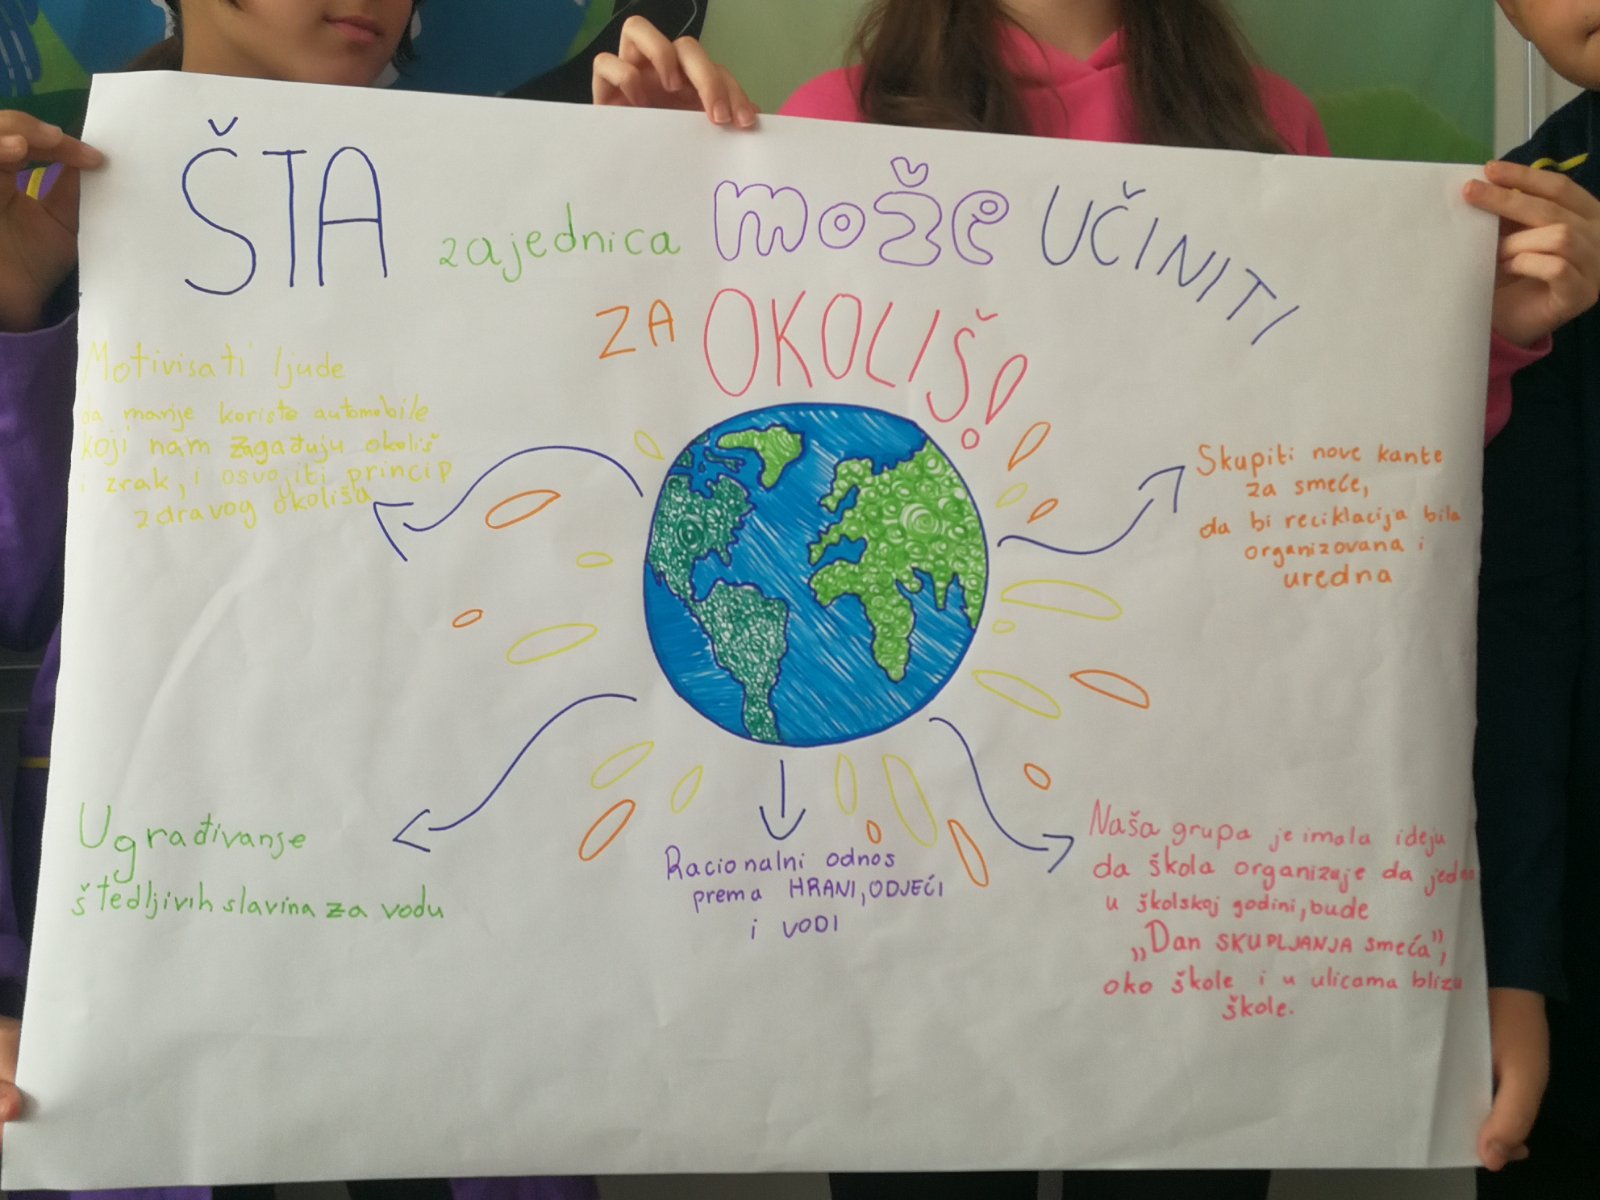 ŠTA zajednica može UČINITI
ZA OKOLIŠ!
Motivisati ljude
da manje koriste automobile
koji nam zagađuju okoliš
i zrak, i osvojiti princip
zdravog okoliša
Skupiti nove kante
za smeće,
da bi reciklacija bila
organizovana i
uredna
Ugrađivanje
štedljivih slavina za vodu
Racionalni odnos
prema HRANI, ODJEĆI
i VODI
Naša grupa je imala ideju
da škola organizuje da jedno
u školskoj godini, bude
„Dan SKUPLJANJA smeća”,
oko škole i u ulicama blizu
škole.